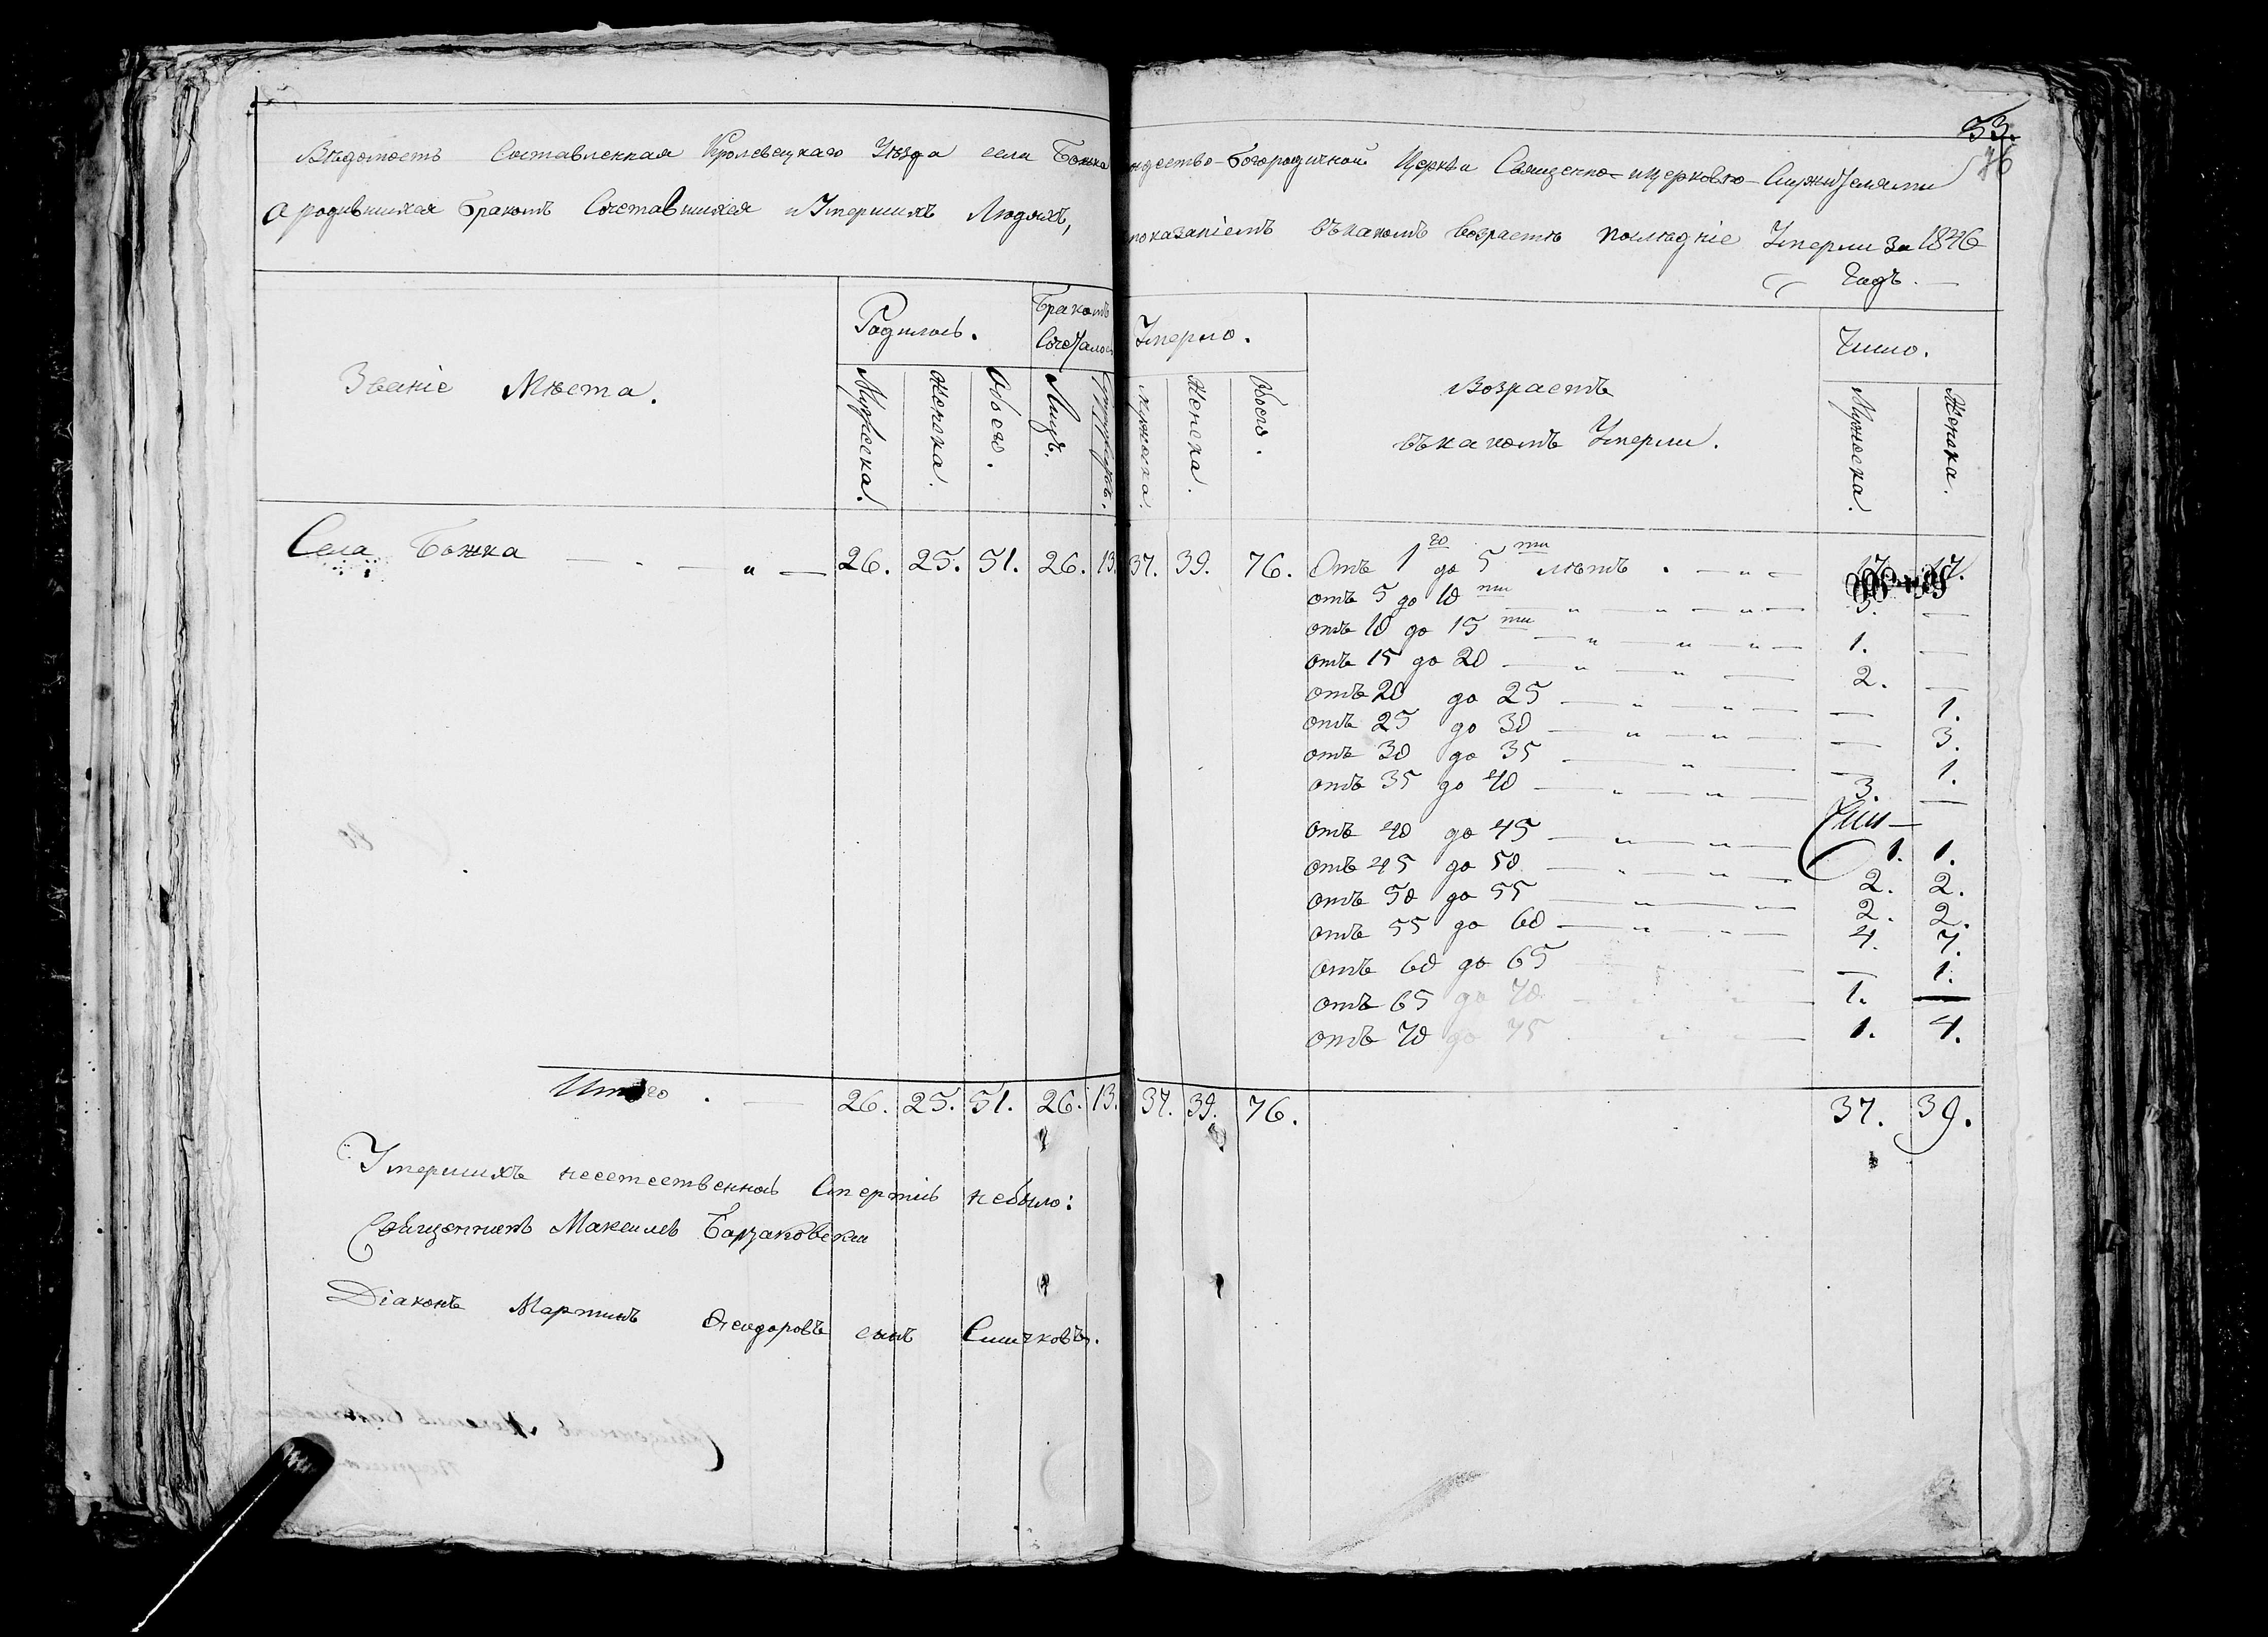 53.
76
Вѣдомость Составленная Кролевецкаго Уѣзда села Божка ждество-Богородичной Церкви Священно-церковно-Служителями
О родившихся бракомъ Сочетавшихся и Умершихъ Людяхъ, показаніемъ въкакомъ возрастѣ послѣдніе Умерли за 1846
Годъ.
Званіе Мѣста.
Родилось.
Бракомъ
Сочеталось
Умерло.
Возрастъ
въкакомъ Умерли.
Число.
Мужеска.
Женска.
Обоего.
Лицъ.
Мужеска.
Женска.
Обоего.
Мужеска.
Женска.
Села Божка — " — 26. 25. 51. 26. 13. 37. 39. 76. Отъ 1го до 5ти лѣтъ . — " — 17. 17.
отъ 5 до 10ти — " — " — " — 3. —
отъ 10 до 15ти — " — " — " — 1. —
отъ 15 до 20 — " — " — 2. —
отъ 20 до 25 — " — " — — 1.
отъ 25 до 30 — " — " — — 3.
отъ 30 до 35 — " — — 1.
отъ 35 до 40 — " — " — 3. —
отъ 40 до 45 — " — " —
1. 1.
отъ 45 до 50 — " — " — 2. 2.
отъ 50 до 55 — " — " — 2. 2.
отъ 55 до 60 — " — " — 4. 7.
отъ 60 до 65 — — 1.
отъ 65 до 70 — 1. —
отъ 70 до 75 — 1. 4.
Итого . — 26. 25. 51. 26. 13. 37. 39. 76. 37. 39.
Умершихъ неестественною Смертію небыло:
Священникъ Максимъ
Діаконъ Мартинъ Ѳеодоровъ сынъ Симчковъ.